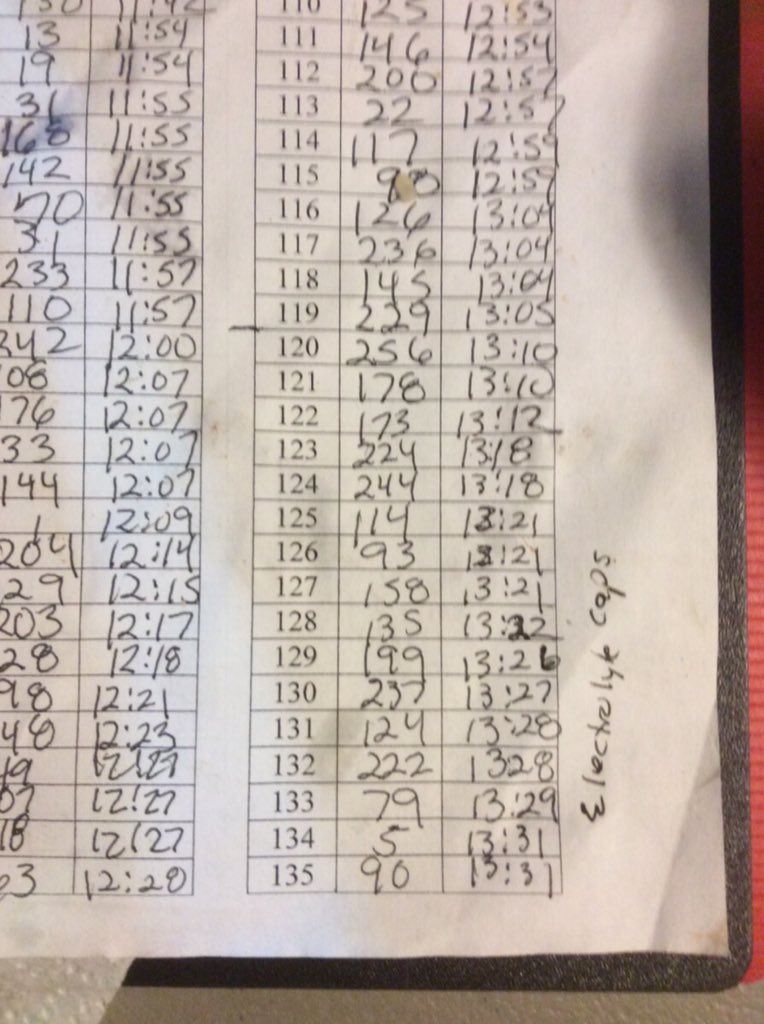 11:42 110 125 12:53
13 11:54 111 146 12:54
19 11:54 112 200 12:57
31 11:55 113 22 12:57
168 11:55 114 117 12:59
142 11:55 115 12:59
70 11:55 116 126 13:04
31 11:55 117 236 13:04
233 11:57 118 145 13:04
110 11:57 119 229 13:05
242 12:00 120 256 13:10
08 12:07 121 178 13:10
176 12:07 122 173 13:12
33 12:07 123 224 13:18
144 12:07 124 244 13:18
1 12:09 125 114 13:21
204 12:14 126 93 13:21
29 12:15 127 158 13:21
203 12:17 128 135 13:22
28 12:18 129 199 13:26
98 12:21 130 237 13:27
48 12:23 131 124 13:28
19 12:27 132 222 1328
07 12:27 133 79 13:29
18 12:27 134 5 13:31
63 12:28 135 90 13:31
Electrolyte caps